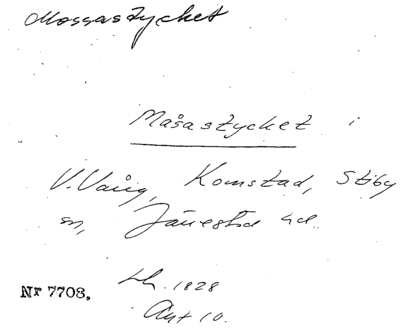 Mossastycket
Måsastycket i
V. Vång, Komstad, Stiby
sn, Järrestad hd.
Lh. 1828
Nr 7708. Akt 10.